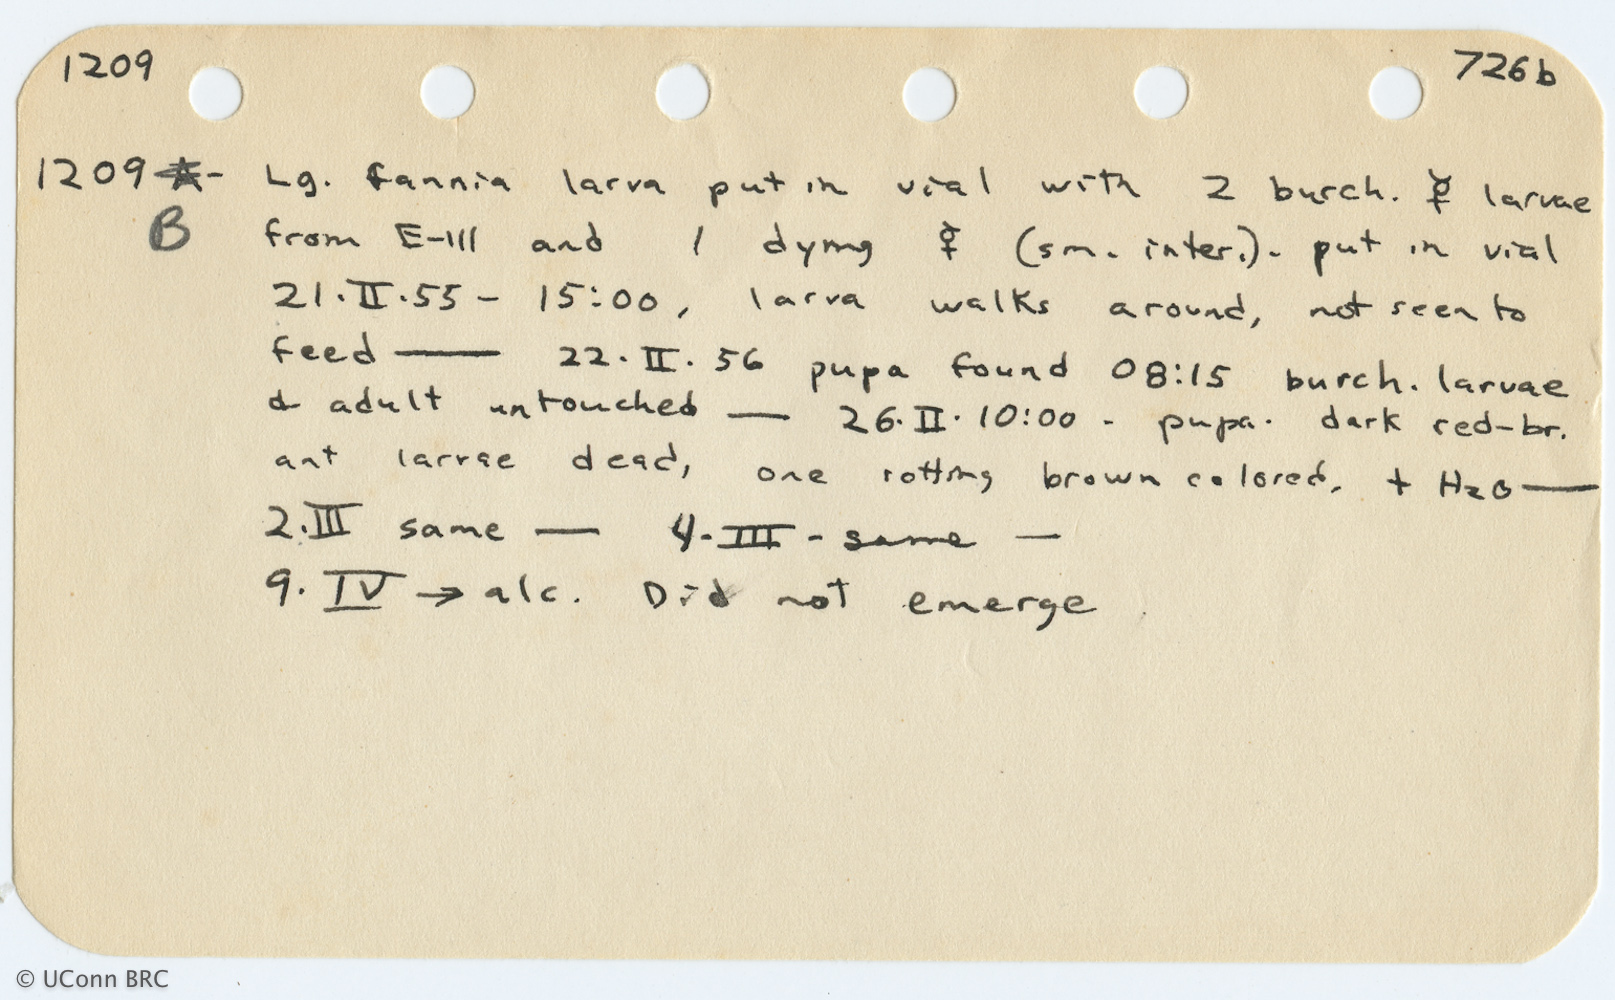 1209
726b
1209 A- Lg. fannia larva put in vial with 2 burch. ☿ larvae
B from E-III and 1 dying ☿ (sm. inter.). put in vial
21.II.55 - 15:00, larva walks around, not seen to
feed — 22.II.56 pupa found 08:15 burch. larvae
& adult untouched — 26.II.10:00 - pupa. dark red-br.
ant larvae dead, one rotting brown colored. + H2O —
2.III same — 4.III - same —
9.IV → alc. Did not emerge
© UConn BRC